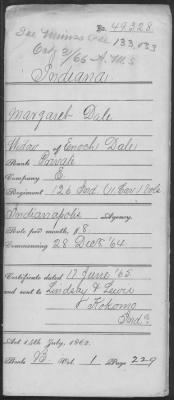 No. 49328
See Minors Cer 133,153
Oct 31/66 A.M.S
Indiana
Margaret Dale
Widow of Enoch Dale
Rank Private
Company E
Regiment 126 Ind (11 Cav) Vols
Indianapolis Agency.
Rate per month, $8
Commencing 28 Decr '64
Certificate dated 17 June '65
and sent to Lindsay & Lewis
Kokomo
Inda
Act 14th July, 1862.
Book B Vol. 1 Page 229